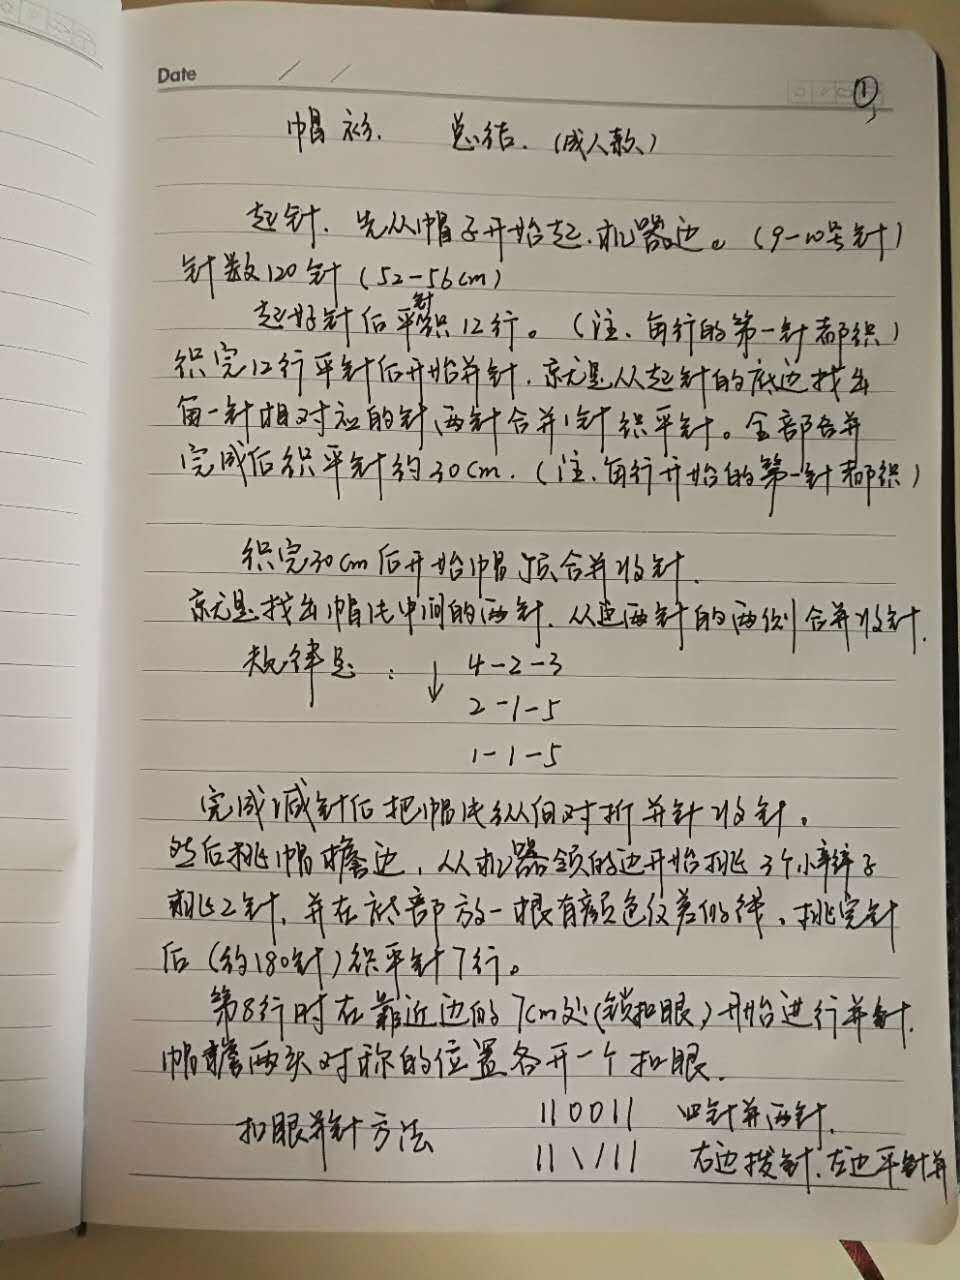 Date / /
①
帽衫. 总结.(成人款)
起针. 先从帽子开始起.机器边。(9-10号针)
针数120针(52-56cm)
起好针后平针织12行。(注.每行的第一针都织)
织完12行平针后开始并针.就是从起针的底边找出
每一针相对应的针,两针合并1针织平针。全部合并
完成后织平针约30cm.(注.每行开始的第一针都织)
织完30cm后开始帽顶合并收针.
就是找出帽片中间的两针.从这两针的两侧合并收针.
规律是: ↓ 4-2-3
2-1-5
1-1-5
完成减针后把帽片纵向对折并针收针.
然后挑帽檐边,从机器领的边开始挑3个小辫子
挑2针.并在底部放一根有颜色反差的线.挑完针
后(约180针)织平针7行。
第8行时在靠近边的7cm处(锁扣眼)开始进行并针.
帽檐两头对称的位置各开一个扣眼.
扣眼并针方法 110011 四针并两针.
11\/11 右边拨针.左边平针并